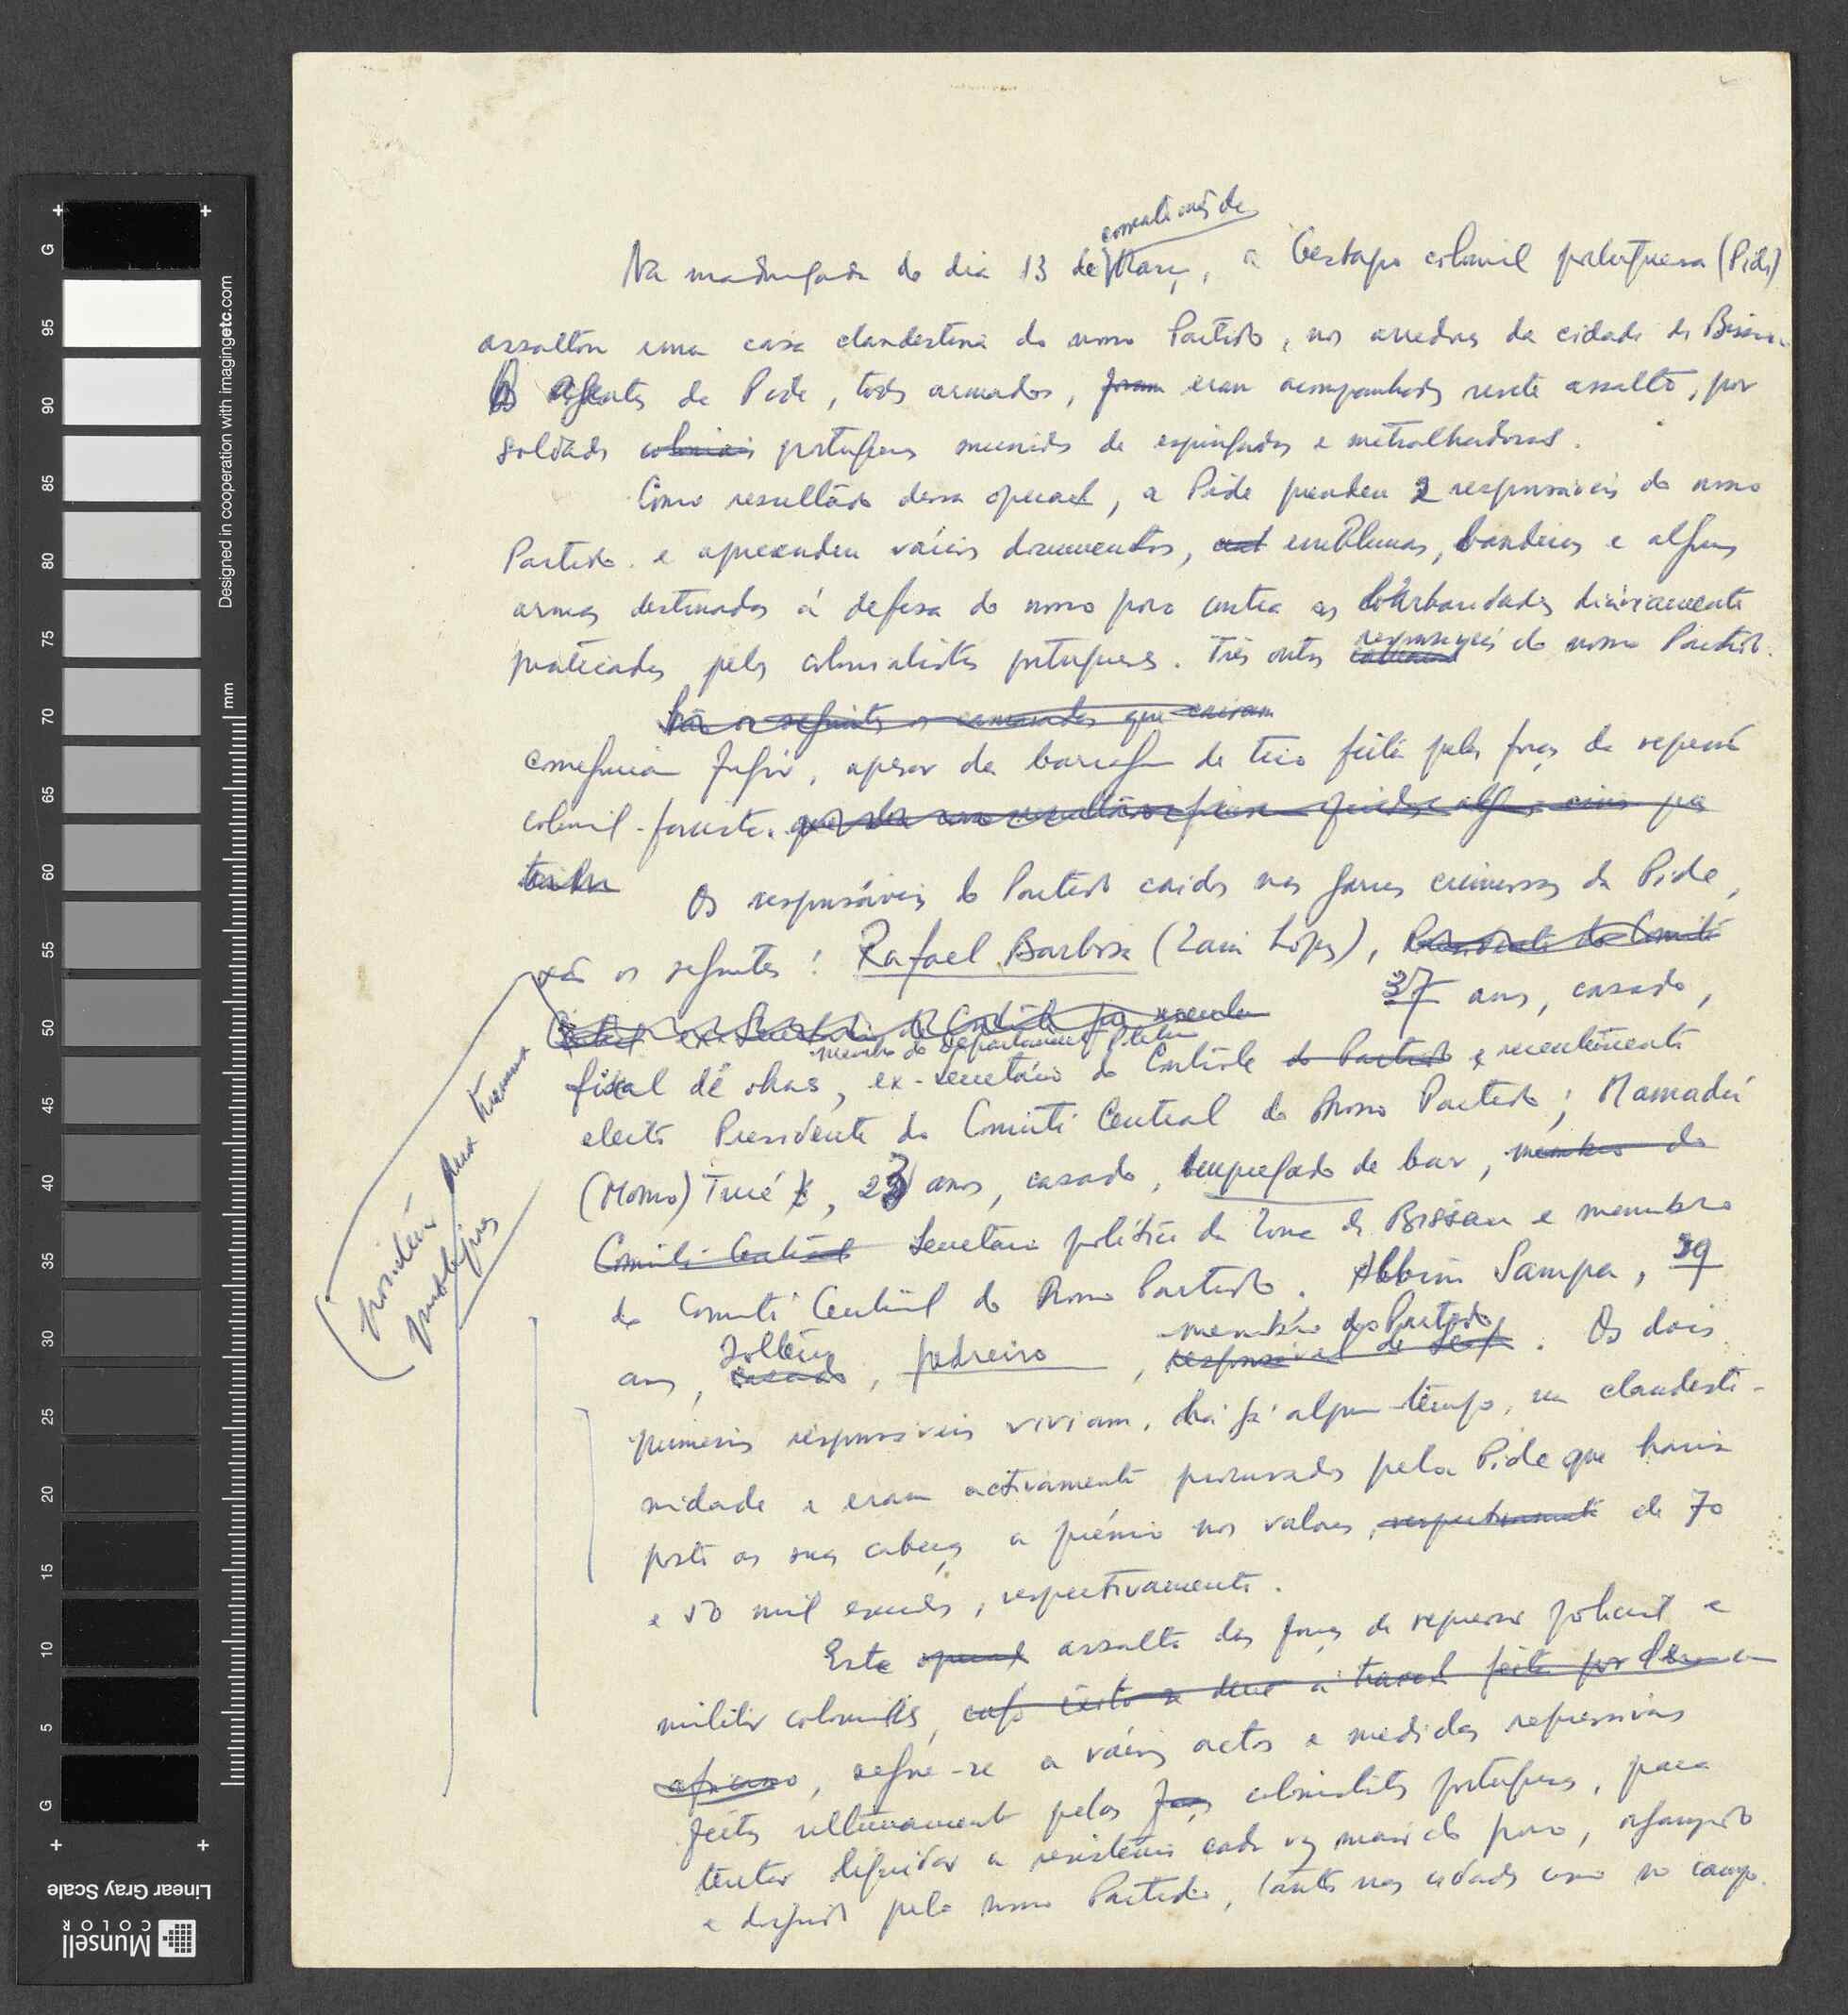 corrente mês de
Na madrugada do dia 13 de Março, a Gestapo colonial portuguesa (Pide)
assaltou uma casa clandestina do nosso Partido, nos arredores da cidade de Bissau.
Os Agentes da Pide, todos armados, foram eram acompanhados neste assalto, por
soldados coloniais portugueses munidos de espingardas e metralhadoras.
Como resultado dessa operação, a Pide prendeu 2 responsáveis do nosso
Partido e apreendeu vários documentos, emblemas, bandeiras e algumas
armas destinadas à defesa do nosso povo contra as barbaridades diàriamente
praticadas pelos colonialistas portugueses. Três outros responsáveis do nosso Partido
São os seguintes os camaradas que cairam
conseguiram fugir, apesar da barragem de tiro feita pelas forças da repressão
colonial-fascista.
Os responsáveis do Partido caídos nas garras criminosas da Pide,
são os seguintes: Rafael Barbosa (Zain Lopes), Presidente do Comité
37 anos, casado,
Central ex-Secretário do Contrôle
membro do Departamento
fiscal de obras, ex-secretário do Contrôle do Partido e recentemente
eleito Presidente do Comité Central do Nosso Partido; Mamadú
(Momo) Turé, 23 anos, casado, empregado de bar, membro do
Comité Central Secretário político da Zona de Bissau e membro
do Comité Central do Nosso Partido. Albino Sampa, 39
solteiro membro do Partido
anos, casado, pedreiro, responsável de . Os dois
primeiros responsáveis viviam, há já algum tempo, na clandesti-
nidade e eram activamente procurados pela Pide que havia
posto as suas cabeças a prémio nos valores, respectivamente de 70
e 50 mil escudos, respectivamente.
Este assalto das forças de repressão policial e
militar colonialistas, cujo êxito se deve à traição feita por
africano, segue-se a vários actos e medidas repressivas
feitas ultimamente pelos colonialistas portugueses, para
tentar liquidar a resistência cada vez maior do povo,
e dirigido pelo nosso Partido, tanto nas cidades como no campo.
G
95
90
85
80
75
70
65
60
55
50
45
40
35
30
25
20
15
10
5
G
mm
Designed in cooperation with imagingetc.com
Linear Gray Scale
Munsell
COLOR